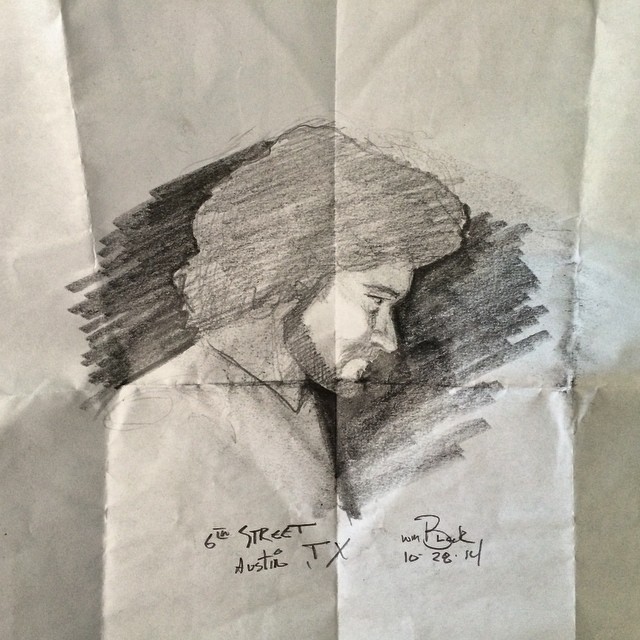 6th STREET
Austin TX
wm
10·28·14